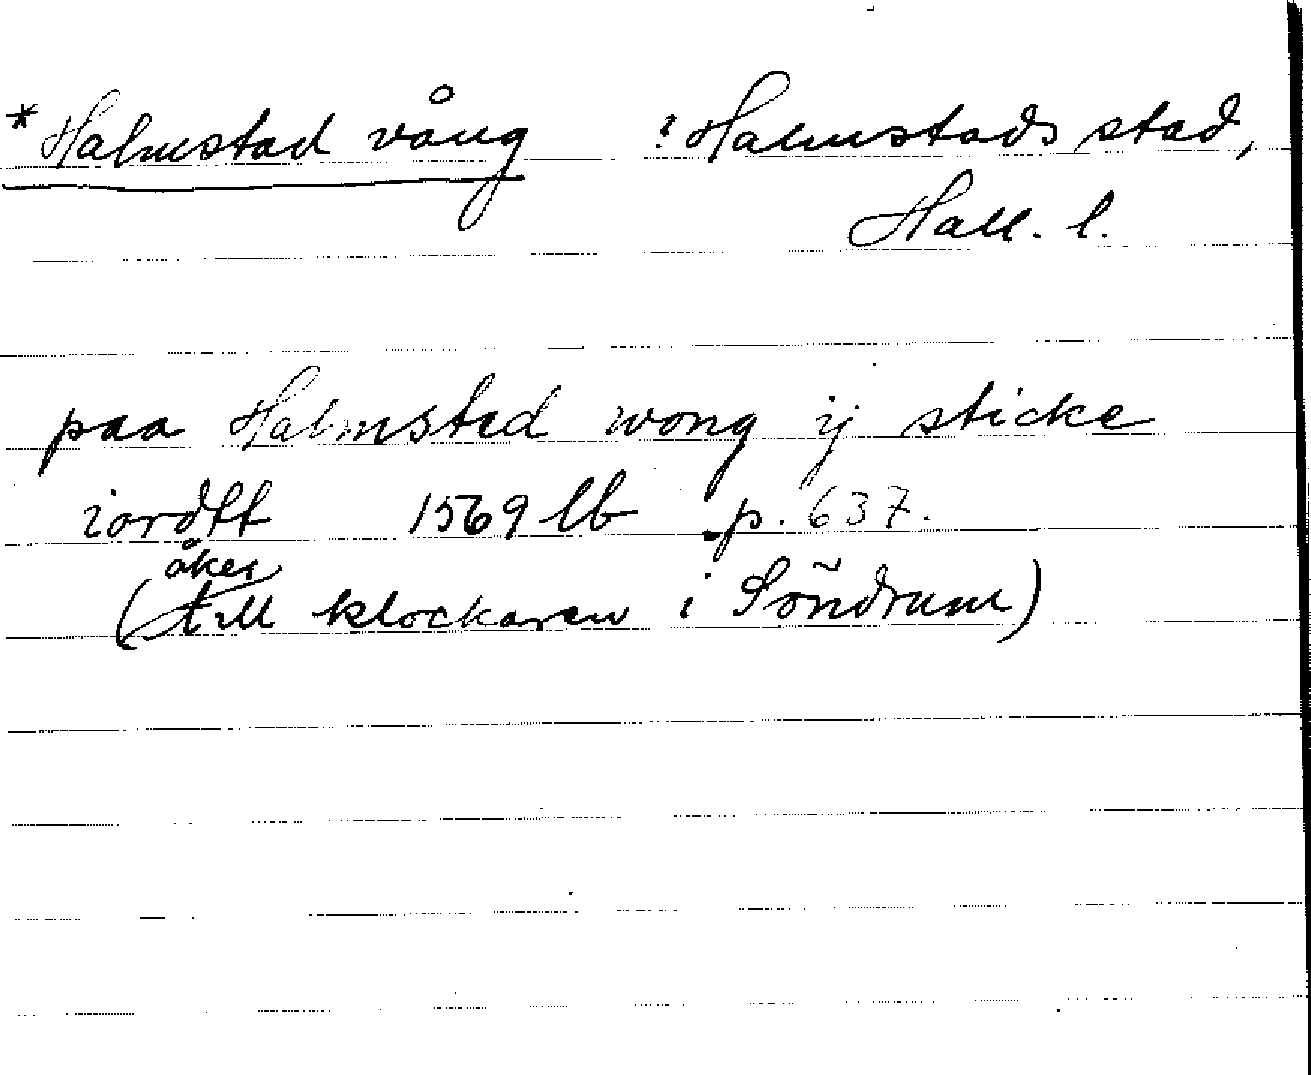 *Halmstad vång i Halmstads stad,
Hall. l.
paa Halmsted wong ij sticke
iordtt 1569 lb p. 637.
åker
(till klockaren i Söndrum)